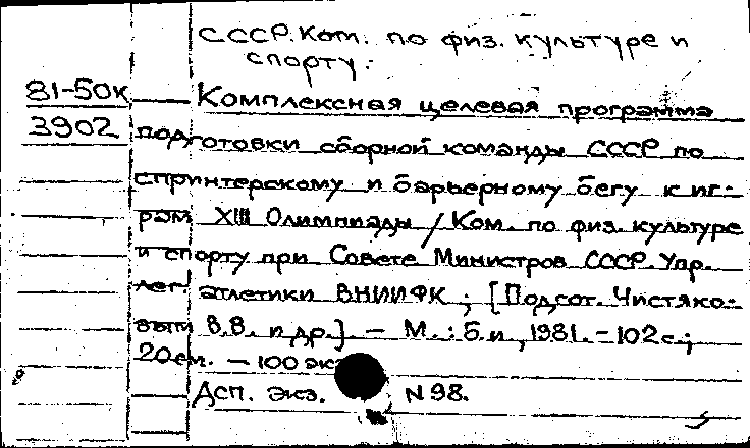 СССР. Ком. по физ. культуре и
спорту.
81-50к Комплексная целевая программа
3902 подготовки сборной команды СССР по
спринтерскому и барьерному бегу к иг-
рам XIII Олимпиады / Ком. по физ. культуре
и спорту при Совете Министров СССР. Упр.
лег. атлетики ВНИИФК ; [Подгот. Чистяко-
вым В.В. и др.]. – М. : Б.и., 1981. – 102 с.;
20 см. – 100 экз
Дсп. Экз. N 98.